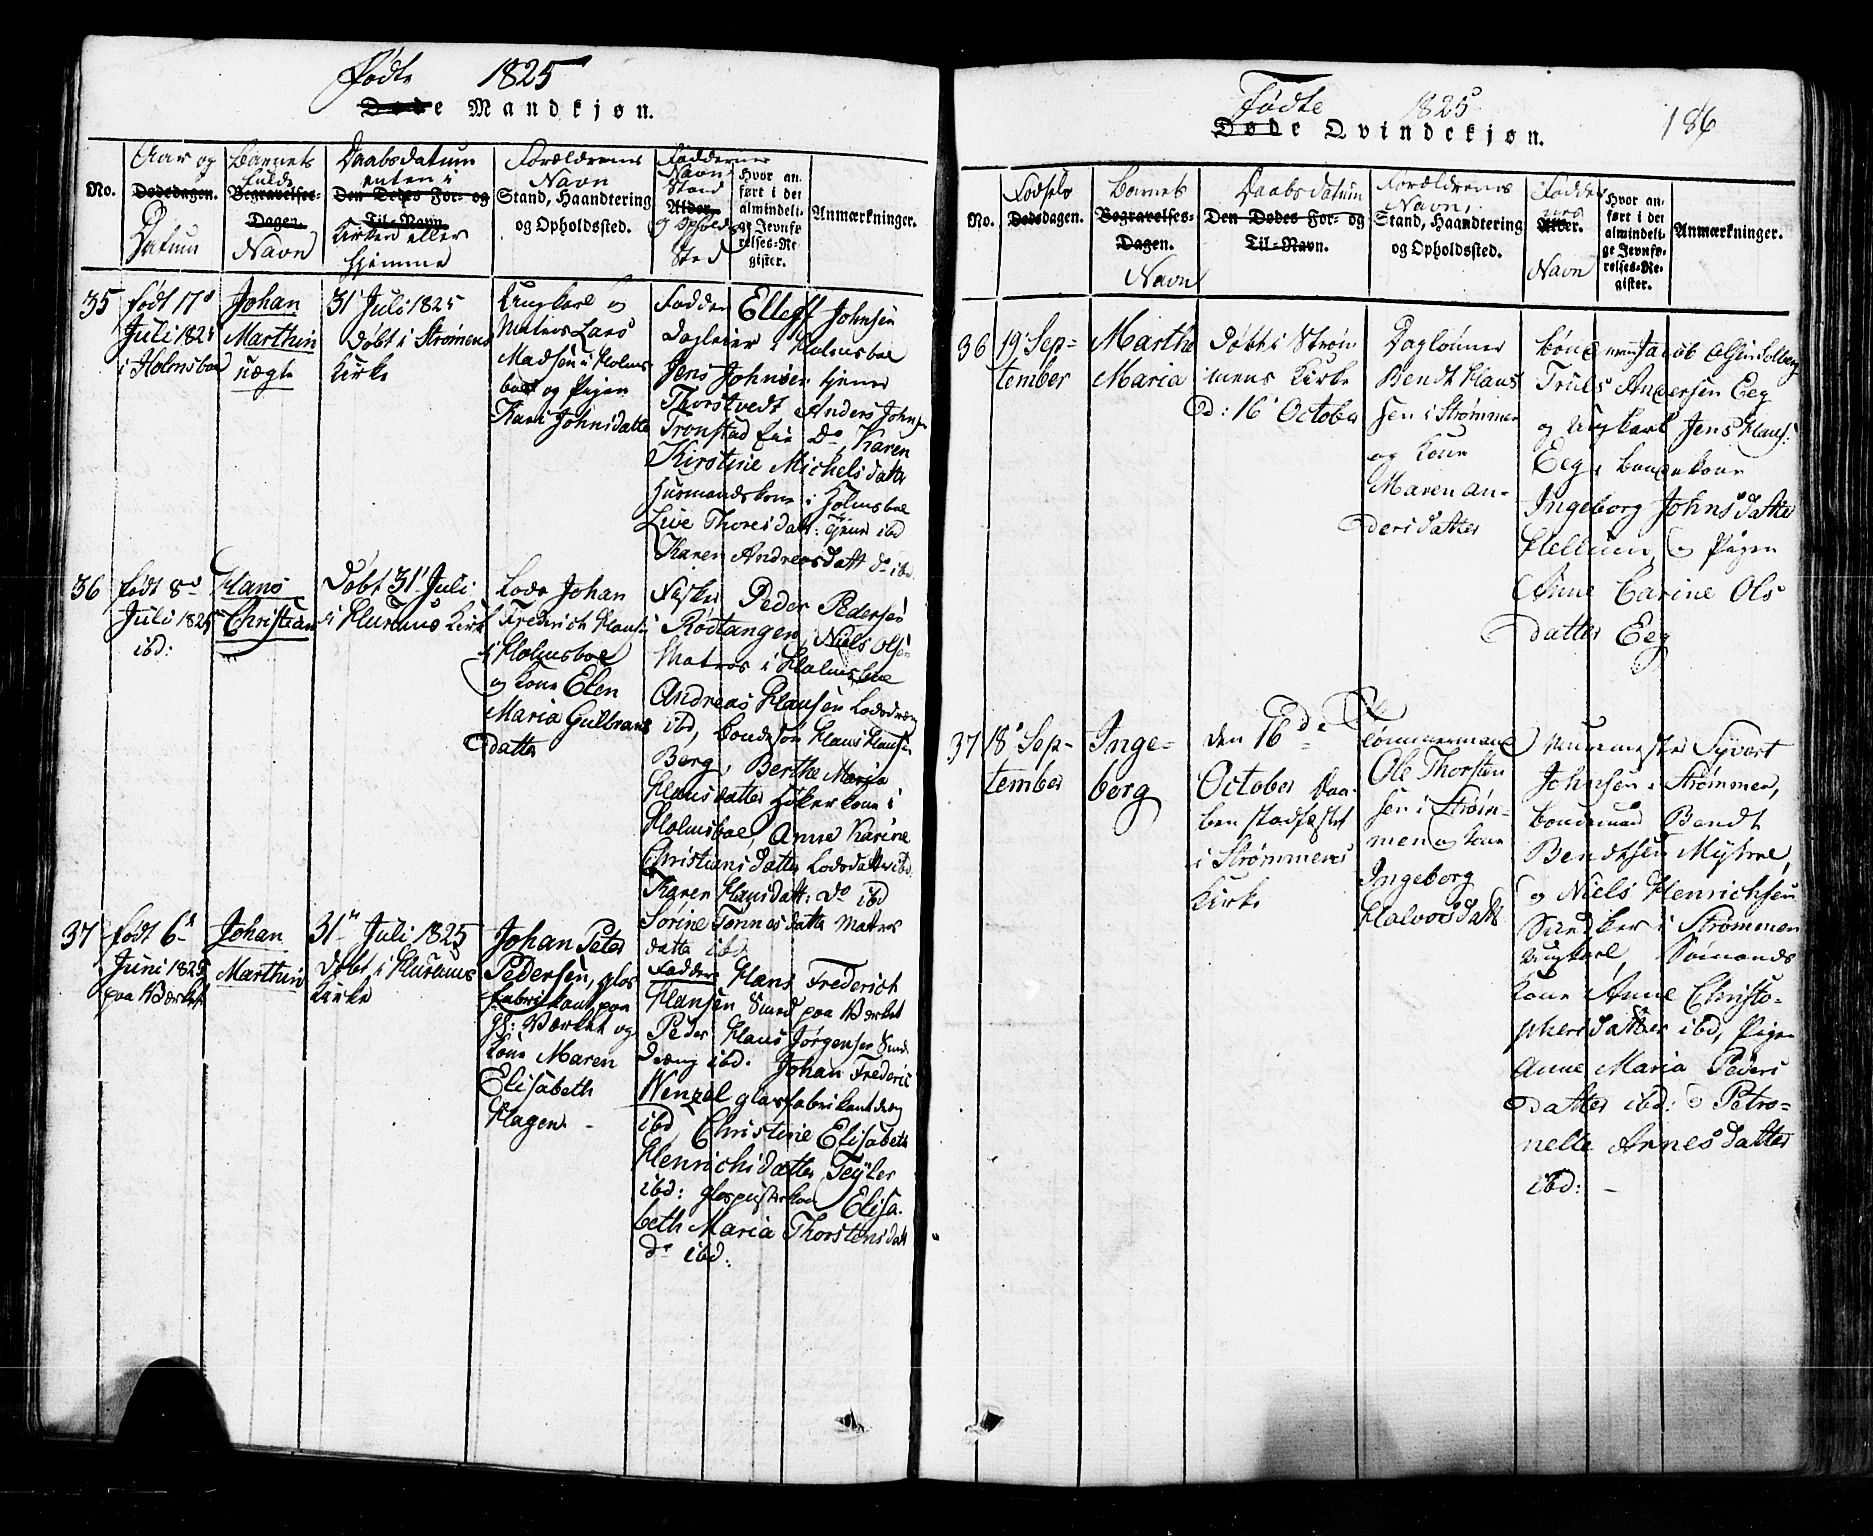 Fødte 1825
Døde Mandkjøn.
No.
Aar og
Dødedagen.
Datum
Barnets
fulde
Begravelses-
Dagen.
Navn
Daabsdatum
enten i
Den Dødes For- og
Til-Navn.
Kirken eller
hjemme
Forældrenes
Navn
Stand, Haandtering
og Opholdssted.
Faddernes
Navn
Stand
Alder.
og Opholds
Sted
Hvor an-
ført i det
almindeli-
ge Jevnfø-
relses-Re-
gister.
Anmærkninger.
35
født 17de
Juli 1825
i Holmsboe
Johan
Marthin
uægte
31 Juli 1825
Døbt i Strømens
Kirke
Ungkarl og
Matros Lars
Madsen i Holms
boe og Pigen
Kari Johnsdatte
Fadder Elleff Johnsen
Dagleier i Holmsboe
Jens Johnsen tjener
Thorstvedt Anders Johns
Tronstad Eie Do Karen
Kirstine Michelsdatte
Husmandskone i Holmsboe
Live Thoresdatt: tjener ibd
Karen Andreasdatt do ibd
36
født 8de
Juli 1825
ibd:
Hans
Christian
Døbt 31' Juli
i Hurums Kirke
Lods Johan
Frederich Hansen
i Holmsboe
og Kone Elen
Maria Gulbrans
datter
Fisker Peder Pedersen
Rødtangen, Niels Olsen
Matros i Holmsboe
Andreas Hansen Lodsdreng
ibd, bondesøn Hans Hansen
Berg, Berthe Maria
Hansdatter Høkerkone i
Holmsboe, Anne Karine
Christiansdatter Lodsdatter ibd.
Karen Hansdatt: do ibd
Sorine Tønnesdatte Matros
datte ibd
37
født 6te
Juni 1825
paa Værket
Johan
Marthin
31te Juli 1825
Døbt i Hurums
Kirke
Johan Peter
Pedersen, glas
fabrikant paa
gl: Værket og
Kone Maren
Elisabeth
Hagen. -
Fadder Hans Frederich
Hansen Smed paa Værket
Peder Hans Jørgensen Smede
dreng ibd. Johan Frederic
Wenzel glasfabrikantdreng
ibd Christine Elisabeth
Henrichsdatter Teyler
ibd: glaspusterkone Elisa-
beth Maria Thorstensdatt
do ibd.
Fødte 1825
Døde Qvindekjøn.
186
No.
Fødsels
Dødsdagen.
Barnets
Begravelses-
Dagen.
Navn
Daabsdatum
Den Dødes For- og
Til-Navn.
Forældrenes
Navn,
Stand, Haandtering
og Opholdssted.
Fadder
nes
Alder.
Navn
Hvor an-
ført i det
almindeli-
ge Jevnfø-
relses-Re-
gister.
Anmærkninger.
36
19' Sep-
tember
Marthe
Maria
Døbt i Strøm
mens Kirke
d: 16' October
Dagleiner
Bendt Hans
sen i Strømmen
og Kone
Maren An-
dersdatter
bondemand Jacob Olsen Solberg
Truls Andersen Eeg
og Ungkarl Jens Hans:
Eeg, bondekone
Ingeborg Johnsdatte
Hellum, og Pigen
Anne Carine Ols
datter Eeg
37
18' Sep-
tember
Inge-
borg
den 16de
October Daa-
ben stadfæstet
i Strømmens
Kirke
Tømmermand
Ole Thorsten
sen i Strøm-
men og Kone
Ingeborg
Halvorsdatt
Muurmester Syvert
Johnsen i Strømmen,
bondemand Bendt
Bendtsen Myhre,
og Niels Henrichsen
Sundker i Strømmen
Ungkarl, Sømands
Kone Anne Christo-
phersdatter ibd, Pigen
Anne Maria Peders
datter ibd: og Petro-
nelle Arnesdatter
ibd: -